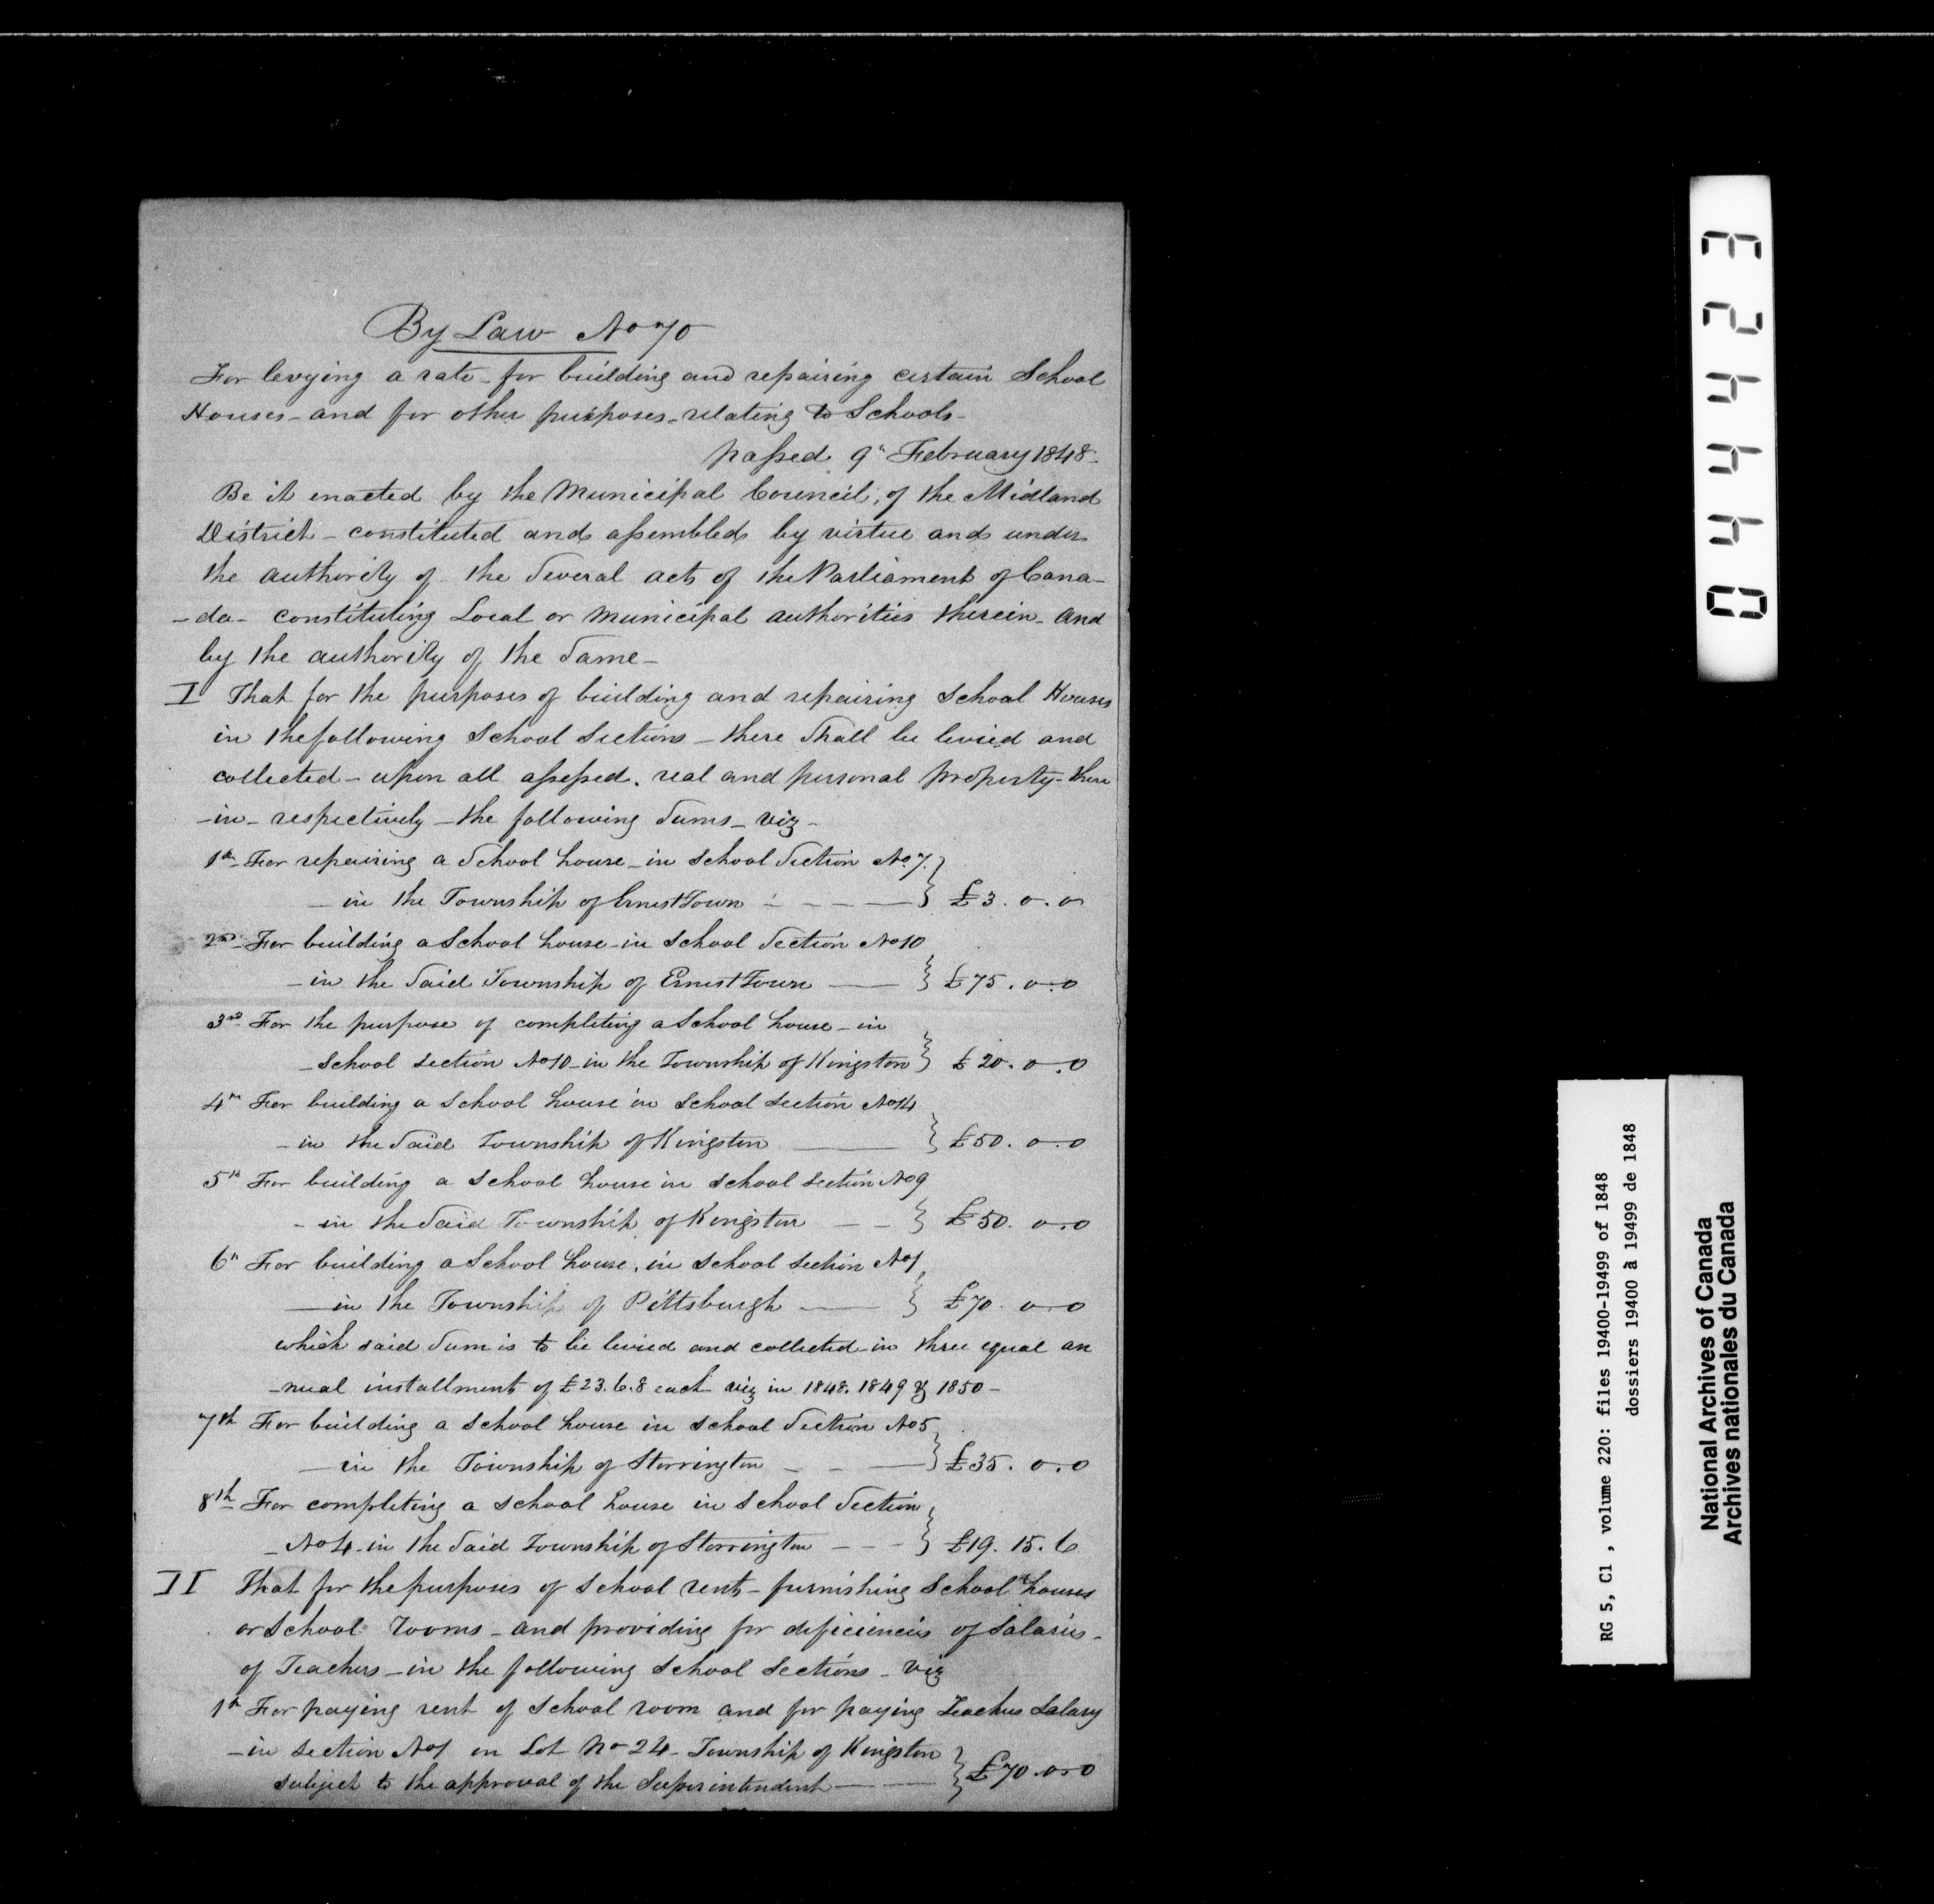 By Law No 70
For levying a rate - for building and repairing certain School
Houses - and for other purposes - relating to Schools -
passed 9th February 1848 -
Be it enacted by the Municipal Council, of the Midland
District - constituted and assembled by virtue and under
the authority of the Several acts of the Parliament of Cana-
- da - constituting Local or Municipal authorities therein - and
by the authority of the Same -
I That for the purposes of building and repairing School Houses
in the following School Sections - there Shall be levied and
collected - upon all assessed. real and personal property - there
- in - respectively - the following Sums - viz -
1st For repairing a School house - in School Section No. 7.
- in the Township of Ernest Town - - - - £3. 0. 0
2nd For building a School house - in School Section No 10
- in the Said Township of Ernest Town — £75. 0. 0
3rd For the purpose of completing a School house - in
- School section No 10 - in the Township of Kingston £20. 0. 0
4th For building a School house in School Section No 14
- in the Said Township of Kingston — £50. 0. 0
5th For building a School house in School Section No 9
- in the Said Township of Kingston - - £50. 0. 0
6th For building a School house, in School Section No 1
— in the Township of Pittsburgh — £70. 0. 0
which said Sum is to be levied and collected in three equal an
- nual installments of £23. 6. 8 each viz in 1848. 1849 & 1850 -
7th For building a School house in School Section No 5
— in the Township of Storrington - - — £35. 0. 0
8th For completing a School house in School Section
- No 4 - in the Said Township of Storrington - - - £19. 15. 6
II That for the purposes of School rent - furnishing School houses
or School Rooms - and providing for deficiencies of Salaries -
of Teachers - in the following School Sections - viz
1st For paying rent of School room and for paying Teachers Salary
- in section No 1 on Lot No 24 - Township of Kingston
subject to the approval of the Superintendent — £70. 0. 0
04423
RG 5, C1 , volume 220: files 19400-19499 of 1848
dossiers 19400 à 19499 de 1848
National Archives of Canada
Archives nationales du Canada